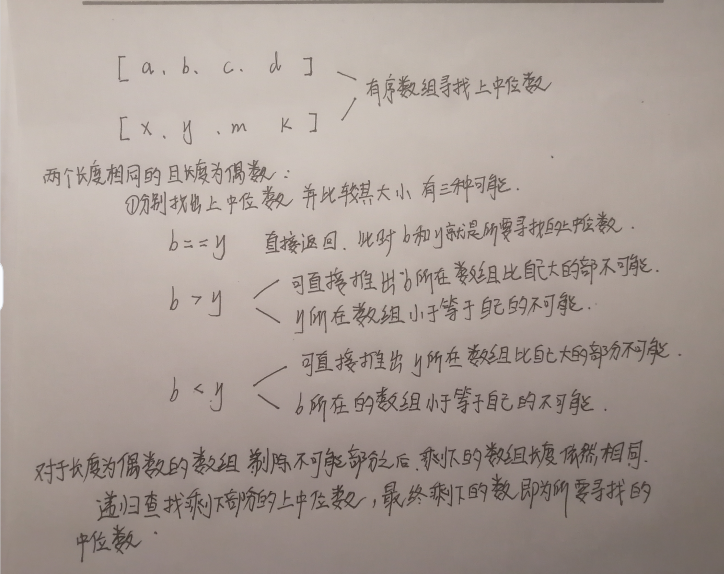 [ a、b、c、d ]
有序数组寻找上中位数
[ x、y、m k ]
两个长度相同的且长度为偶数：
①分别找出上中位数 并比较其大小 有三种可能.
b==y 直接返回、此时b和y就是所要寻找的上中位数.
b>y 可直接推出b所在数组比自己大的部不可能.
y所在数组小于等于自己的不可能.
可直接推出y所在数组比自己大的部分不可能.
b<y
b所在的数组小于等于自己的不可能.
对于长度为偶数的数组 剔除不可能部分之后、剩下的数组长度依然相同.
递归查找剩下部分的上中位数，最终剩下的数即为所要寻找的
中位数.